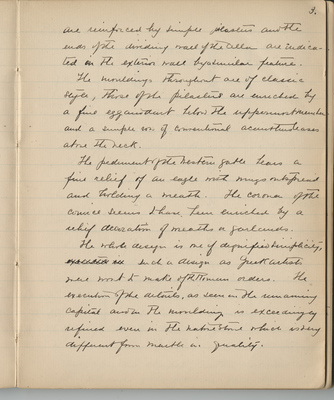 3.
are reinforced by simple pilasters and the
ends of the dividing wall of the cella are indica-
ted on the exterior wall by similar feature.
The mouldings throughout are of classic
style, those of the pilasters are enriched by
a fine egg and dart below the uppermost member
and a simple row of conventional acanthus leaves
above the neck.
The pediment of the Western gable bears a
fine relief of an eagle with wings outspread
and holding a wreath. The corona of the
cornice seems to have been enriched by a
relief decoration of wreaths or garlands.
The whole design is one of dignified simplicity,
such a design as Greek artists
were wont to make of the Roman orders. The
execution of the details, as seen in the remaining
capital and in the moulding is exceedingly
refined even in the native stone which is very
different from marble in quality.